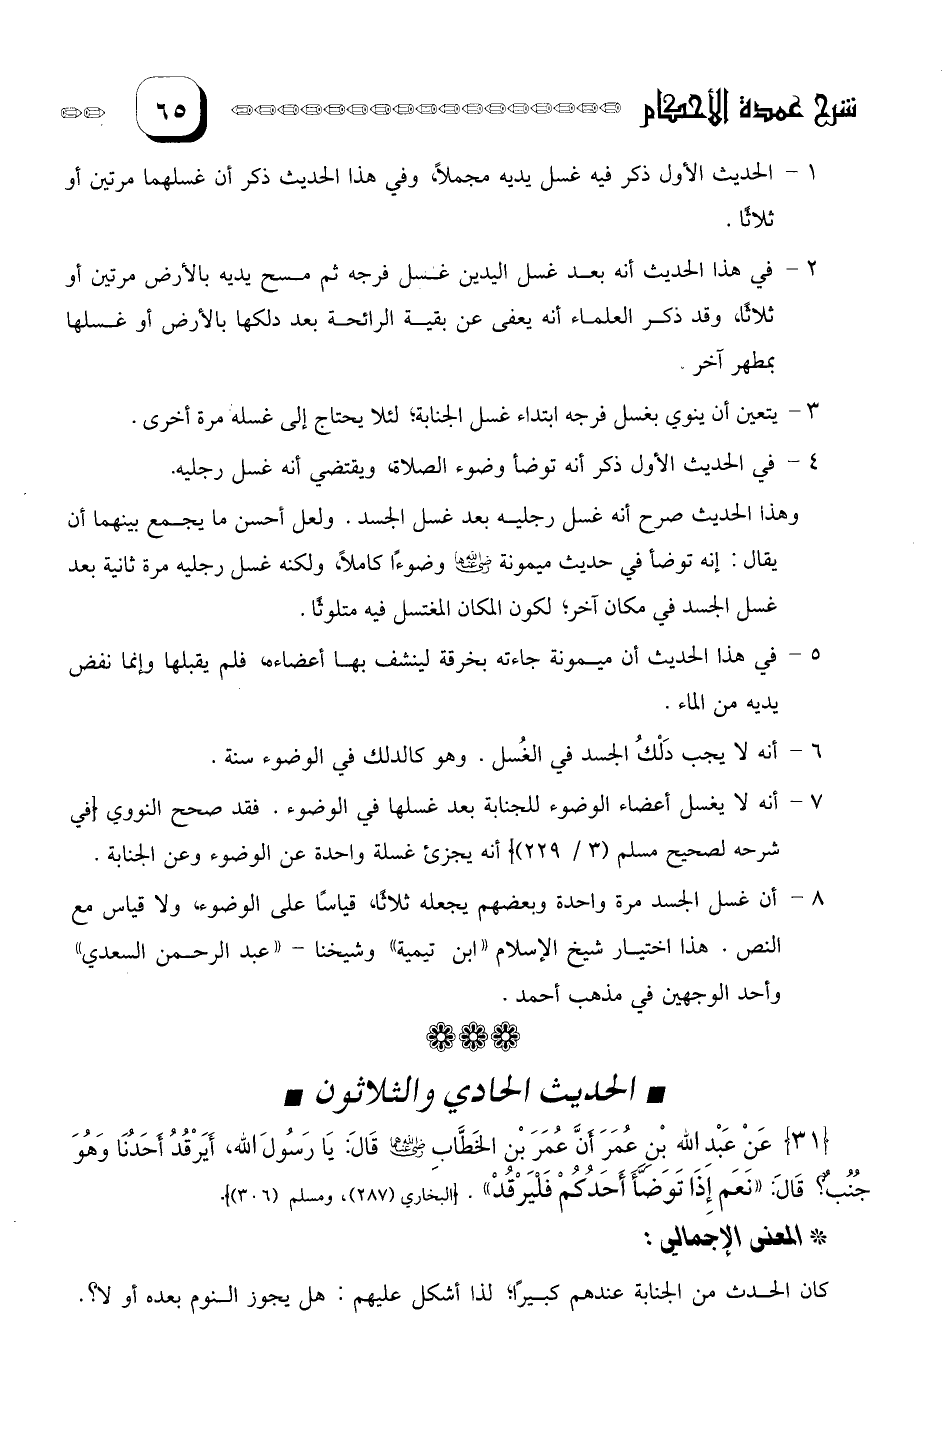 شرح عمدة الأحكام ٦٥
١ - الحديث الأول ذكر فيه غسل يديه مجملاً، وفي هذا الحديث ذكر أن غسلهما مرتين أو
ثلاثًا .
٢ - في هذا الحديث أنه بعد غسل اليدين غسل فرجه ثم مسح يديه بالأرض مرتين أو
ثلاثًا، وقد ذكر العلماء أنه يعفى عن بقية الرائحة بعد دلكها بالأرض أو غسلها
بمطهر آخر .
٣ - يتعين أن ينوي بغسل فرجه ابتداء غسل الجنابة؛ لئلا يحتاج إلى غسله مرة أخرى .
٤ - في الحديث الأول ذكر أنه توضأ وضوء الصلاة، ويقتضي أنه غسل رجليه.
وهذا الحديث صرح أنه غسل رجليه بعد غسل الجسد . ولعل أحسن ما يجمع بينهما أن
يقال : إنه توضأ في حديث ميمونة رضي الله عنها وضوءًا كاملاً، ولكنه غسل رجليه مرة ثانية بعد
غسل الجسد في مكان آخر؛ لكون المكان المغتسل فيه متلوثًا .
٥ - في هذا الحديث أن ميمونة جاءته بخرقة لينشف بها أعضاءه، فلم يقبلها وإنما نفض
يديه من الماء .
٦ - أنه لا يجب دَلْكُ الجسد في الغُسل . وهو كالدلك في الوضوء سنة .
٧ - أنه لا يغسل أعضاء الوضوء للجنابة بعد غسلها في الوضوء . فقد صحح النووي {في
شرحه لصحيح مسلم (٣ / ٢٢٩)} أنه يجزئ غسلة واحدة عن الوضوء وعن الجنابة .
٨ - أن غسل الجسد مرة واحدة وبعضهم يجعله ثلاثًا، قياسًا على الوضوء، ولا قياس مع
النص . هذا اختيار شيخ الإسلام «ابن تيمية» وشيخنا - «عبد الرحمن السعدي»
وأحد الوجهين في مذهب أحمد .
■ الحديث الحادي والثلاثون ■
{٣١} عَنْ عَبْدِ الله بْنِ عُمَرَ أَنَّ عُمَرَ بْنِ الخَطَّابِ رضي الله عنهما قَالَ: يَا رَسُولَ الله، أَيَرْقُدُ أَحَدُنَا وَهُوَ
جُنُبٌ؟ قَالَ: «نَعَم إِذَا تَوَضَّأَ أَحَدُكُمْ فَلْيَرْقُدْ» . {البخاري (٢٨٧)، ومسلم (٣٠٦)}.
* المعنى الإجمالي :
كان الحدث من الجنابة عندهم كبيرًا؛ لذا أشكل عليهم : هل يجوز النوم بعده أو لا؟.